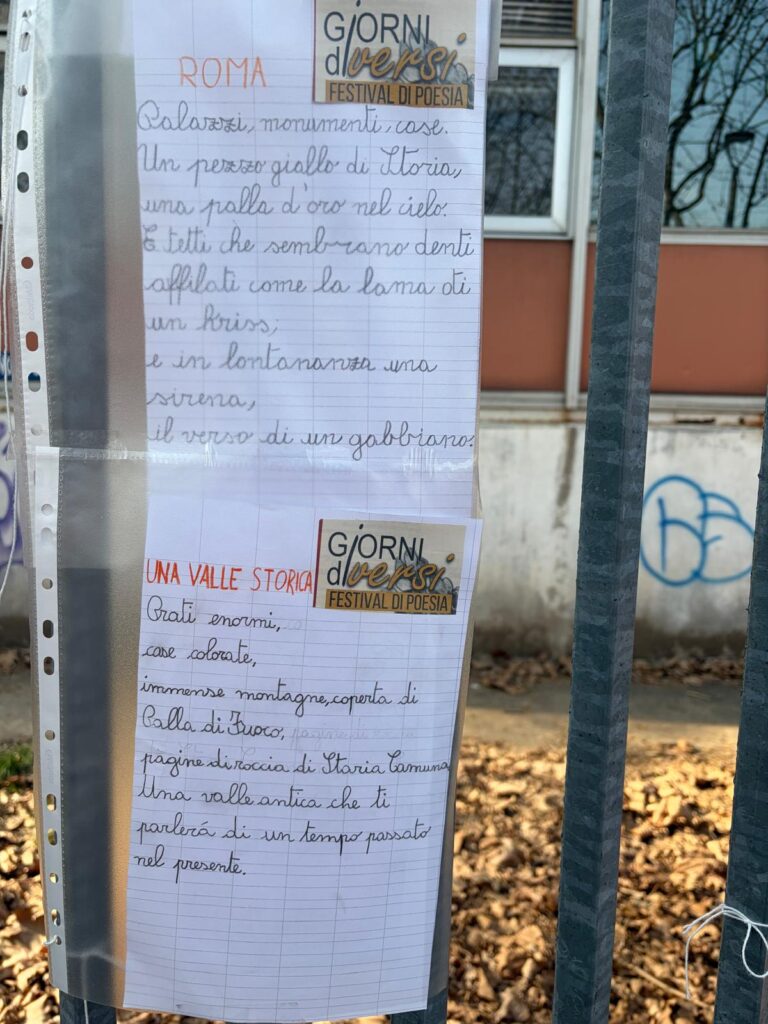 GiORNI
diversi
FESTIVAL DI POESIA
ROMA
Palazzi, monumenti, case.
Un pezzo giallo di Storia,
una palla d'oro nel cielo.
E tetti che sembrano denti
affilati come la lama di
un kriss;
e in lontananza una
sirena,
il verso di un gabbiano.
GiORNI
diversi
FESTIVAL DI POESIA
UNA VALLE STORICA
Prati enormi,
case colorate,
immense montagne, coperta di
Palla di Fuoco,
pagine di roccia di Storia Camuna
Una valle antica che ti
parlerá di un tempo passato
nel presente.